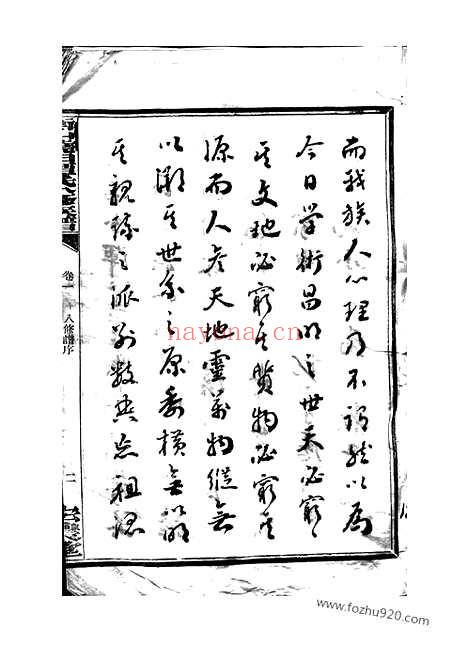 而我族人心理乃不謂然以為
今日學術昌明之世天必窮
其文地必窮其質物必窮其
源而人參天地靈萬物縱無
以溯其世系之原委橫無以明
其親疏之派別數典忘祖認
卷一
八修譜序
hayena.cn
www.fozhu920.com